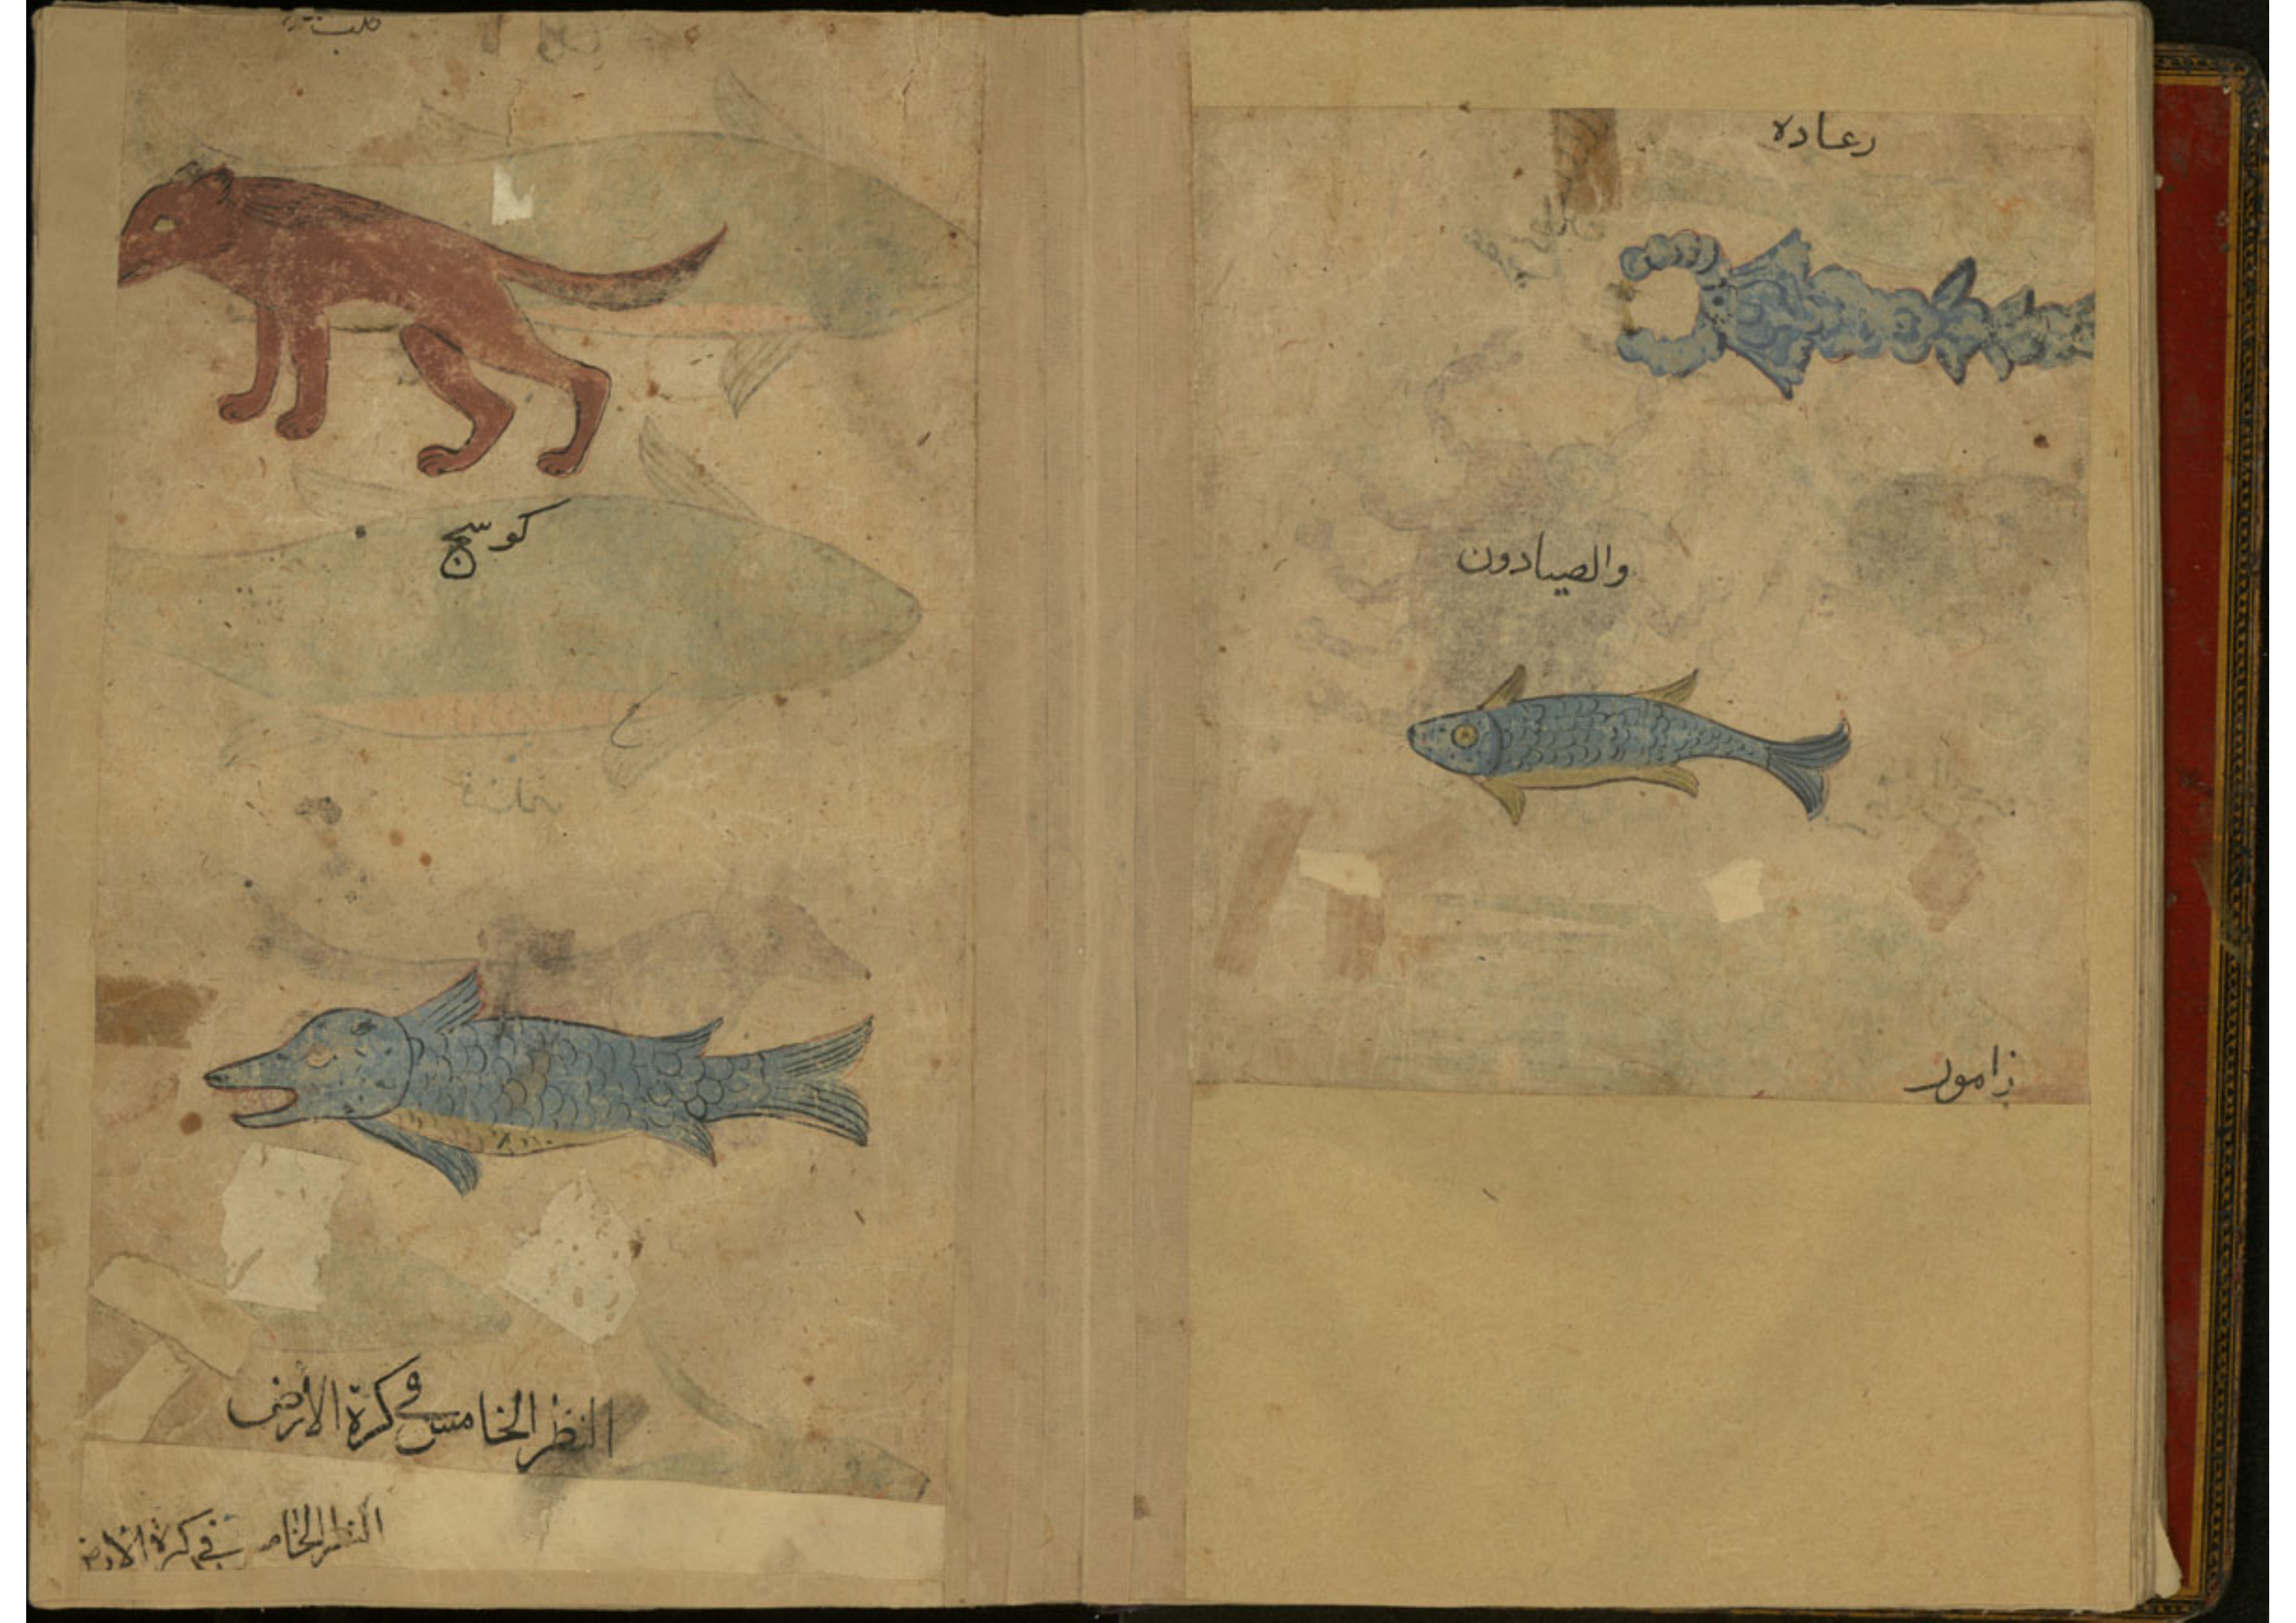 رعاده
والصيادون
زامور
كلب
كوسج
النظر الخامس في كرة الأرض
النظر الخامس في كرة الارض